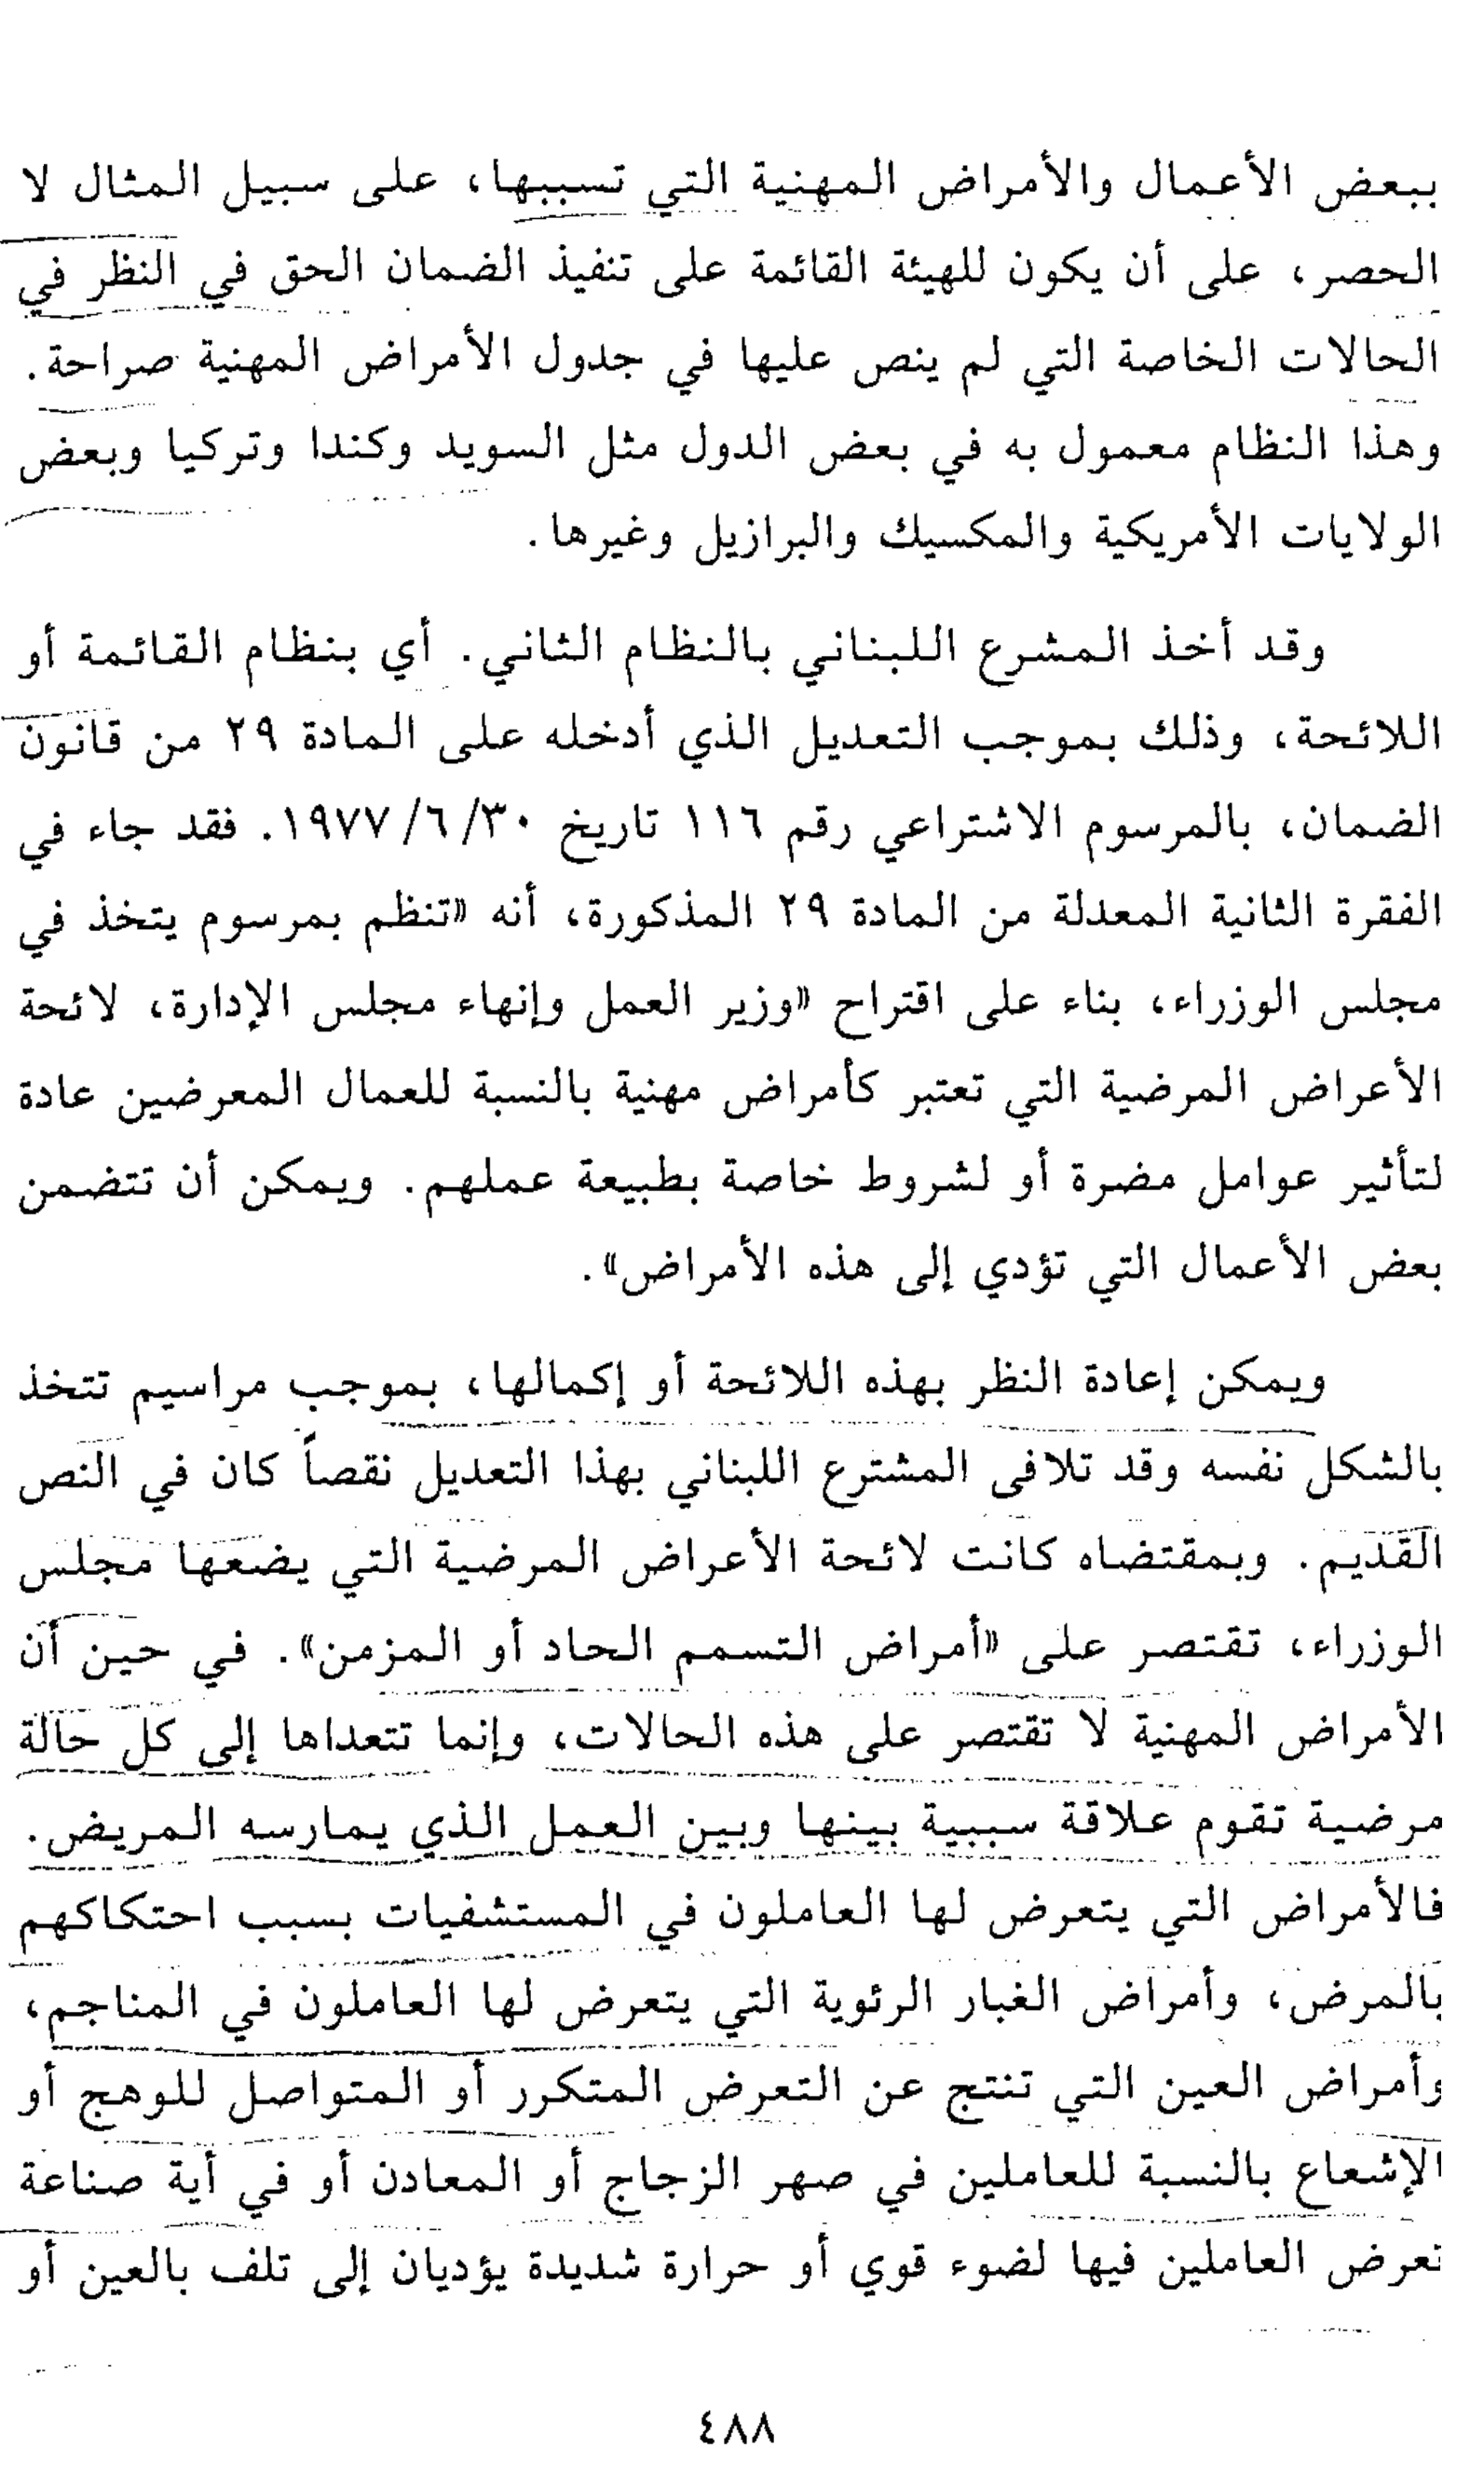 ببعض الأعمال والأمراض المهنية التي تسببها، على سبيل المثال لا
الحصر، على أن يكون للهيئة القائمة على تنفيذ الضمان الحق في النظر في
الحالات الخاصة التي لم ينص عليها في جدول الأمراض المهنية صراحة.
وهذا النظام معمول به في بعض الدول مثل السويد وكندا وتركيا وبعض
الولايات الأمريكية والمكسيك والبرازيل وغيرها.
وقد أخذ المشرع اللبناني بالنظام الثاني. أي بنظام القائمة أو
اللائحة، وذلك بموجب التعديل الذي أدخله على المادة ٢٩ من قانون
الضمان، بالمرسوم الاشتراعي رقم ١١٦ تاريخ ٣٠/٦/١٩٧٧. فقد جاء في
الفقرة الثانية المعدلة من المادة ٢٩ المذكورة، أنه «تنظم بمرسوم يتخذ في
مجلس الوزراء، بناء على اقتراح «وزير العمل وإنهاء مجلس الإدارة، لائحة
الأعراض المرضية التي تعتبر كأمراض مهنية بالنسبة للعمال المعرضين عادة
لتأثير عوامل مضرة أو لشروط خاصة بطبيعة عملهم. ويمكن أن تتضمن
بعض الأعمال التي تؤدي إلى هذه الأمراض».
ويمكن إعادة النظر بهذه اللائحة أو إكمالها، بموجب مراسيم تتخذ
بالشكل نفسه وقد تلافى المشترع اللبناني بهذا التعديل نقصاً كان في النص
القديم. وبمقتضاه كانت لائحة الأعراض المرضية التي يضعها مجلس
الوزراء، تقتصر على «أمراض التسمم الحاد أو المزمن». في حين أن
الأمراض المهنية لا تقتصر على هذه الحالات، وإنما تتعداها إلى كل حالة
مرضية تقوم علاقة سببية بينها وبين العمل الذي يمارسه المريض.
فالأمراض التي يتعرض لها العاملون في المستشفيات بسبب احتكاكهم
بالمرض، وأمراض الغبار الرئوية التي يتعرض لها العاملون في المناجم،
وأمراض العين التي تنتج عن التعرض المتكرر أو المتواصل للوهج أو
الإشعاع بالنسبة للعاملين في صهر الزجاج أو المعادن أو في أية صناعة
تعرض العاملين فيها لضوء قوي أو حرارة شديدة يؤديان إلى تلف بالعين أو
٤٨٨